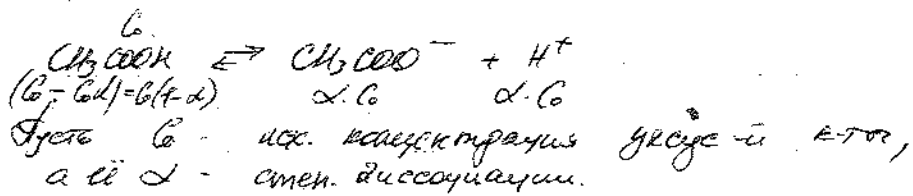 C₀
CH₃COOH ⇄ CH₃COO⁻ + H⁺
(C₀ - C₀α) = C₀(1-α) α·C₀ α·C₀
Пусть C₀ - исх. концентрация уксус-й к-ты,
а её α - степ. диссоциации.